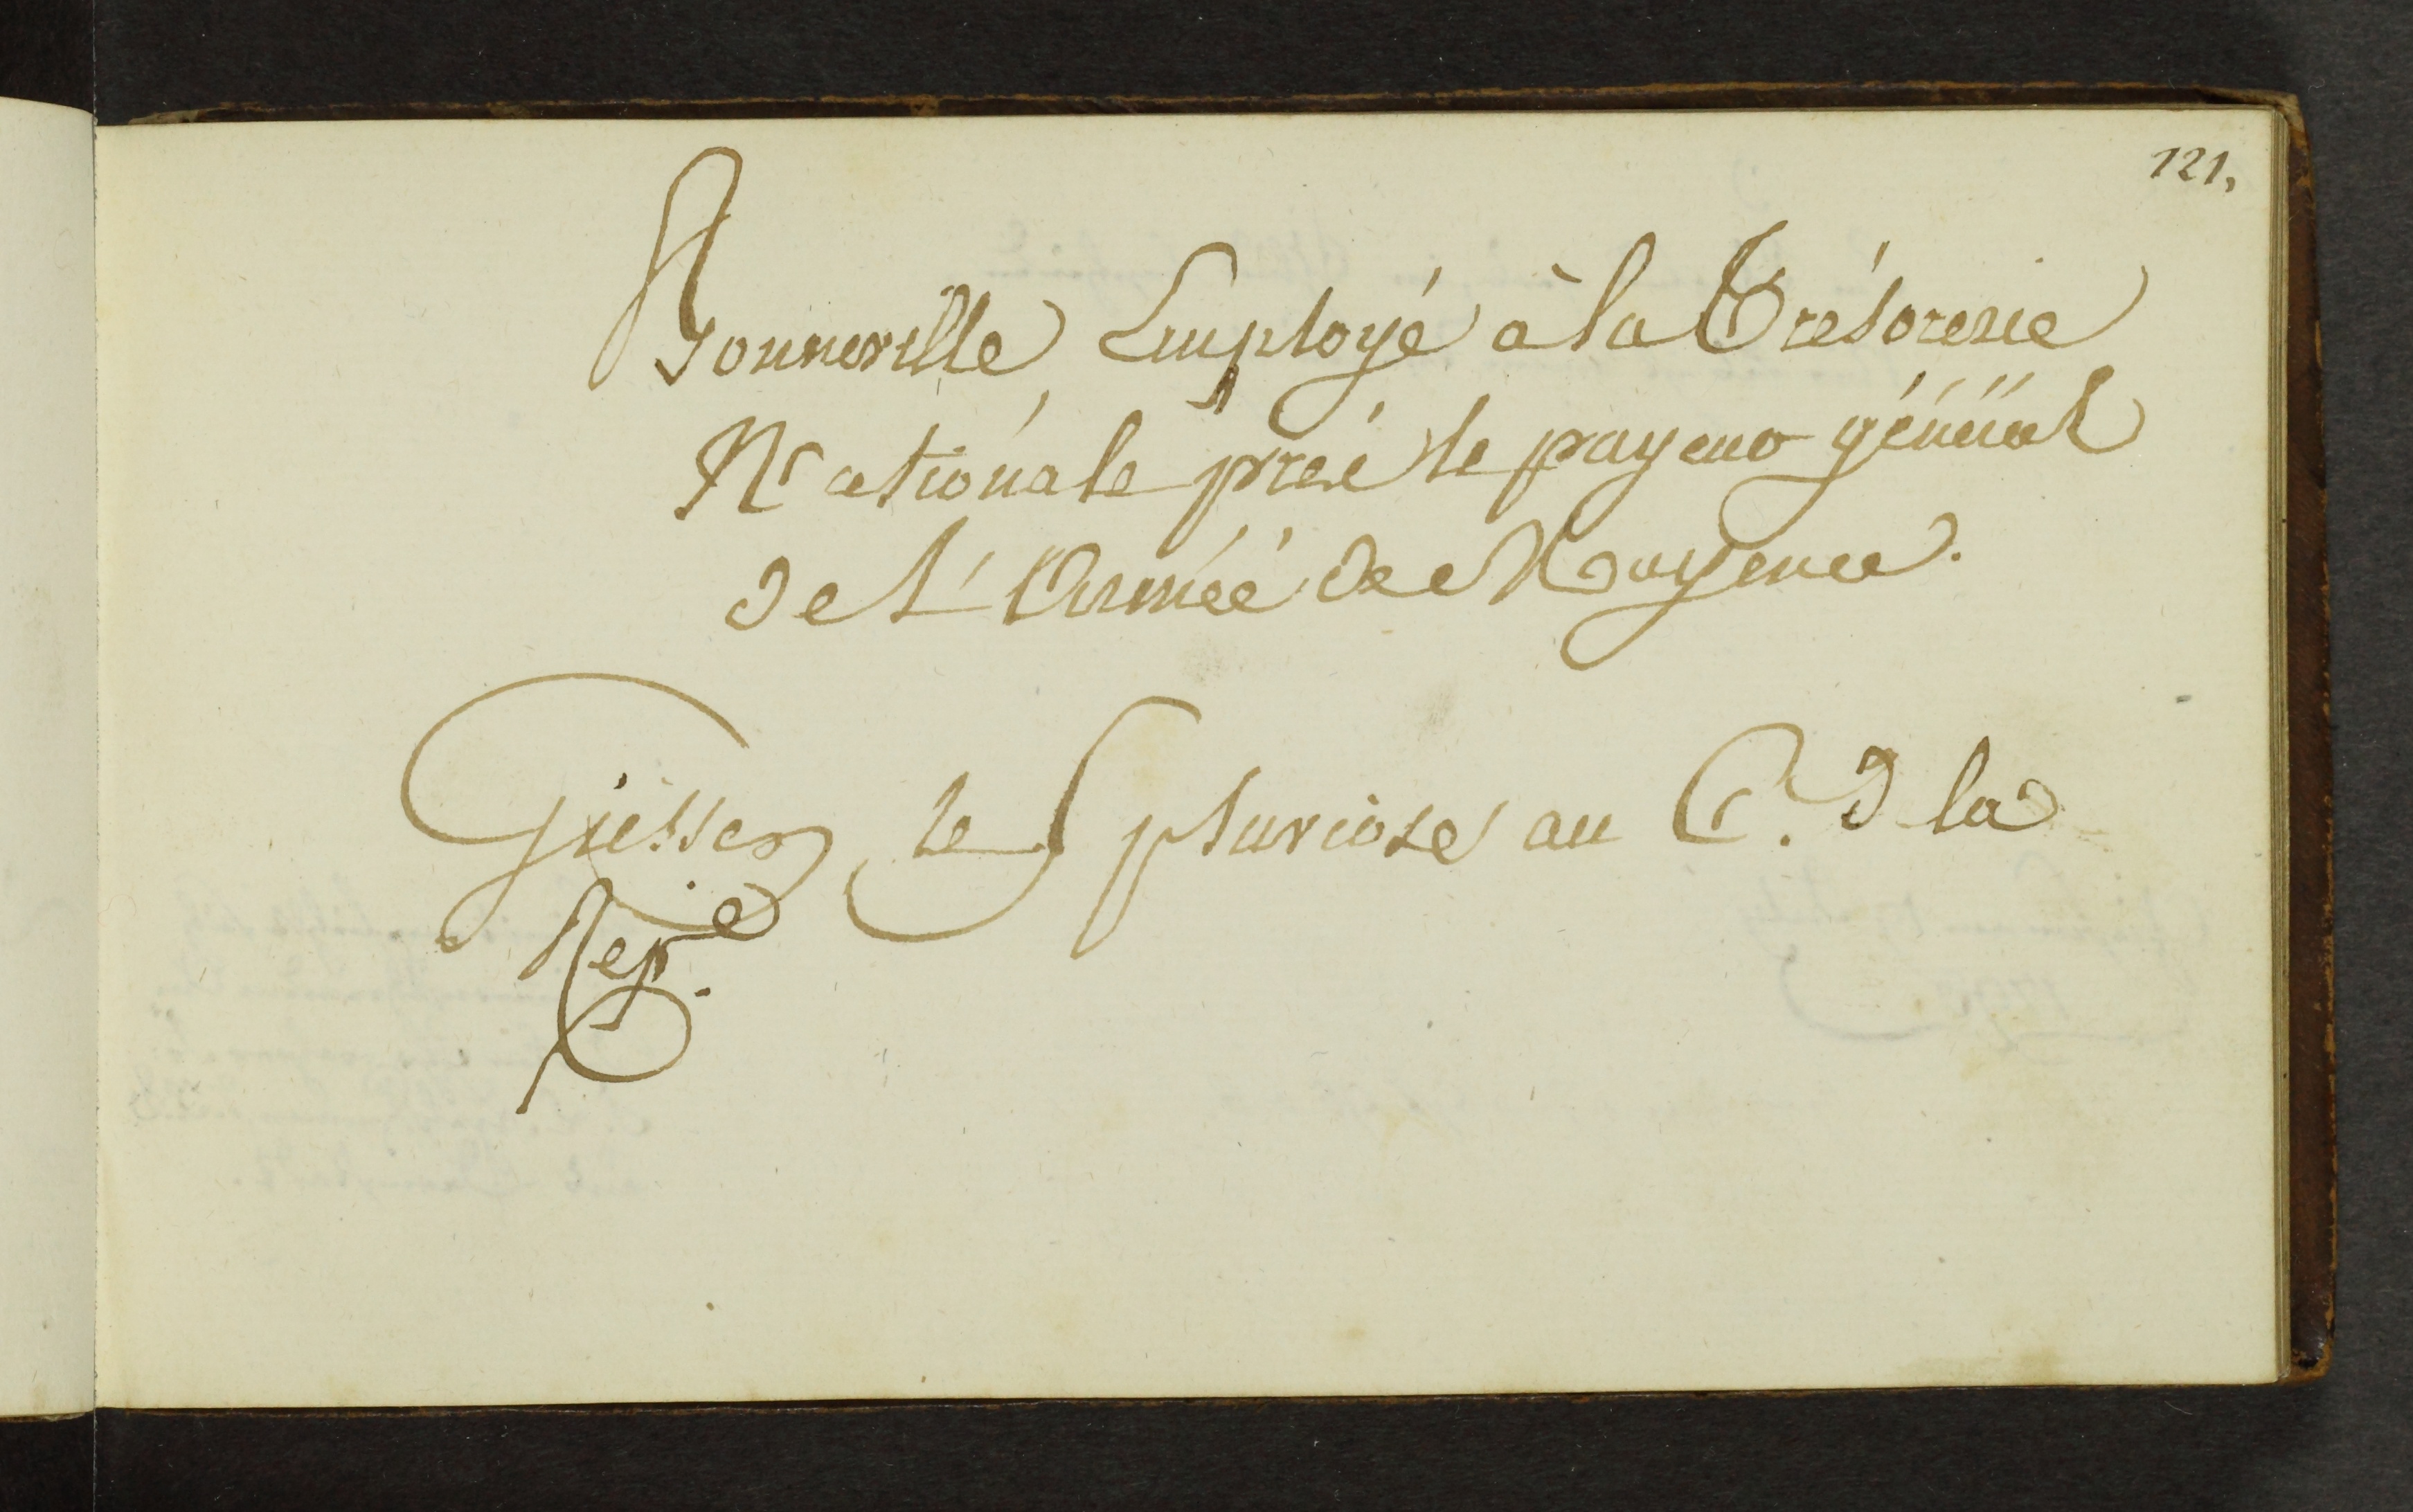 121.
Bonneville Employé à la Trésorerie
Nationale près le payeur général
de L'Armée de Mayence.
Giessen le 5 pluviose au 6. d la
Rep.e